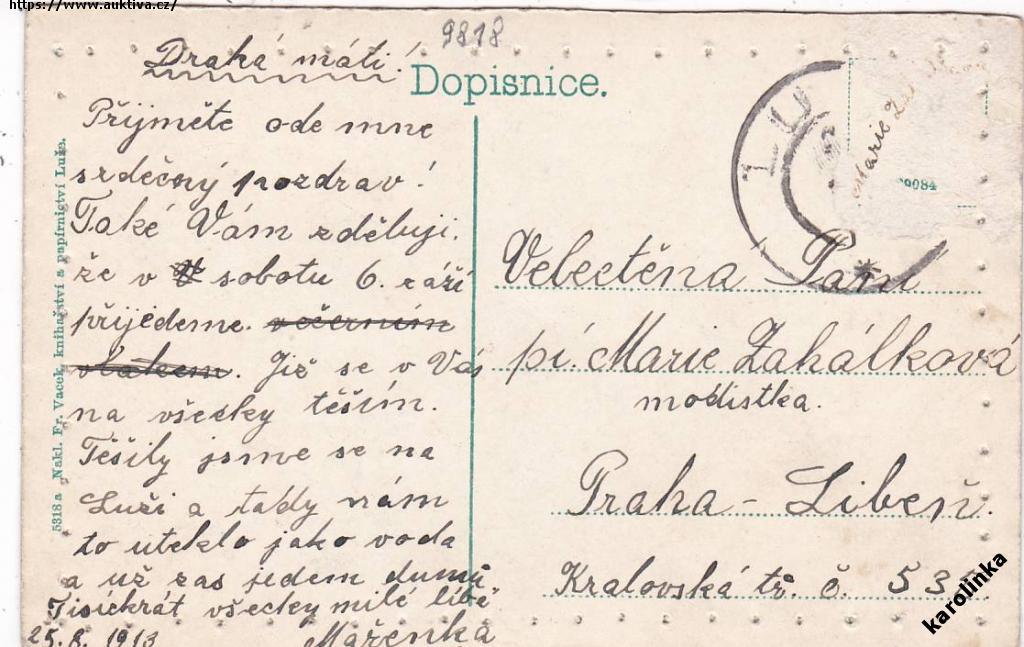 https://www.auktiva.cz/
9818
Drahá máti!
Dopisnice.
Přijměte ode mne
srdečný pozdrav!
Také Vám zděluji.
že v sobotu 6. září
přijedeme. večerním
vlakem. Již se v Vás
na všecky těším.
Těšily jsme se na
Luži a tady nám
to uteklo jako voda
a už zas jedem dumů.
Tisíckrát všecky milé líbá
25.8. 1913 Mařenka
5318a Nakl. Fr. Vacek, knihařství a papírnictví Luže.
LU
Marie
0084
Velectěna Paní
pí. Marie Zahálková
modistka.
Praha - Libeň.
Kralovská tř. č. 53
karolinka